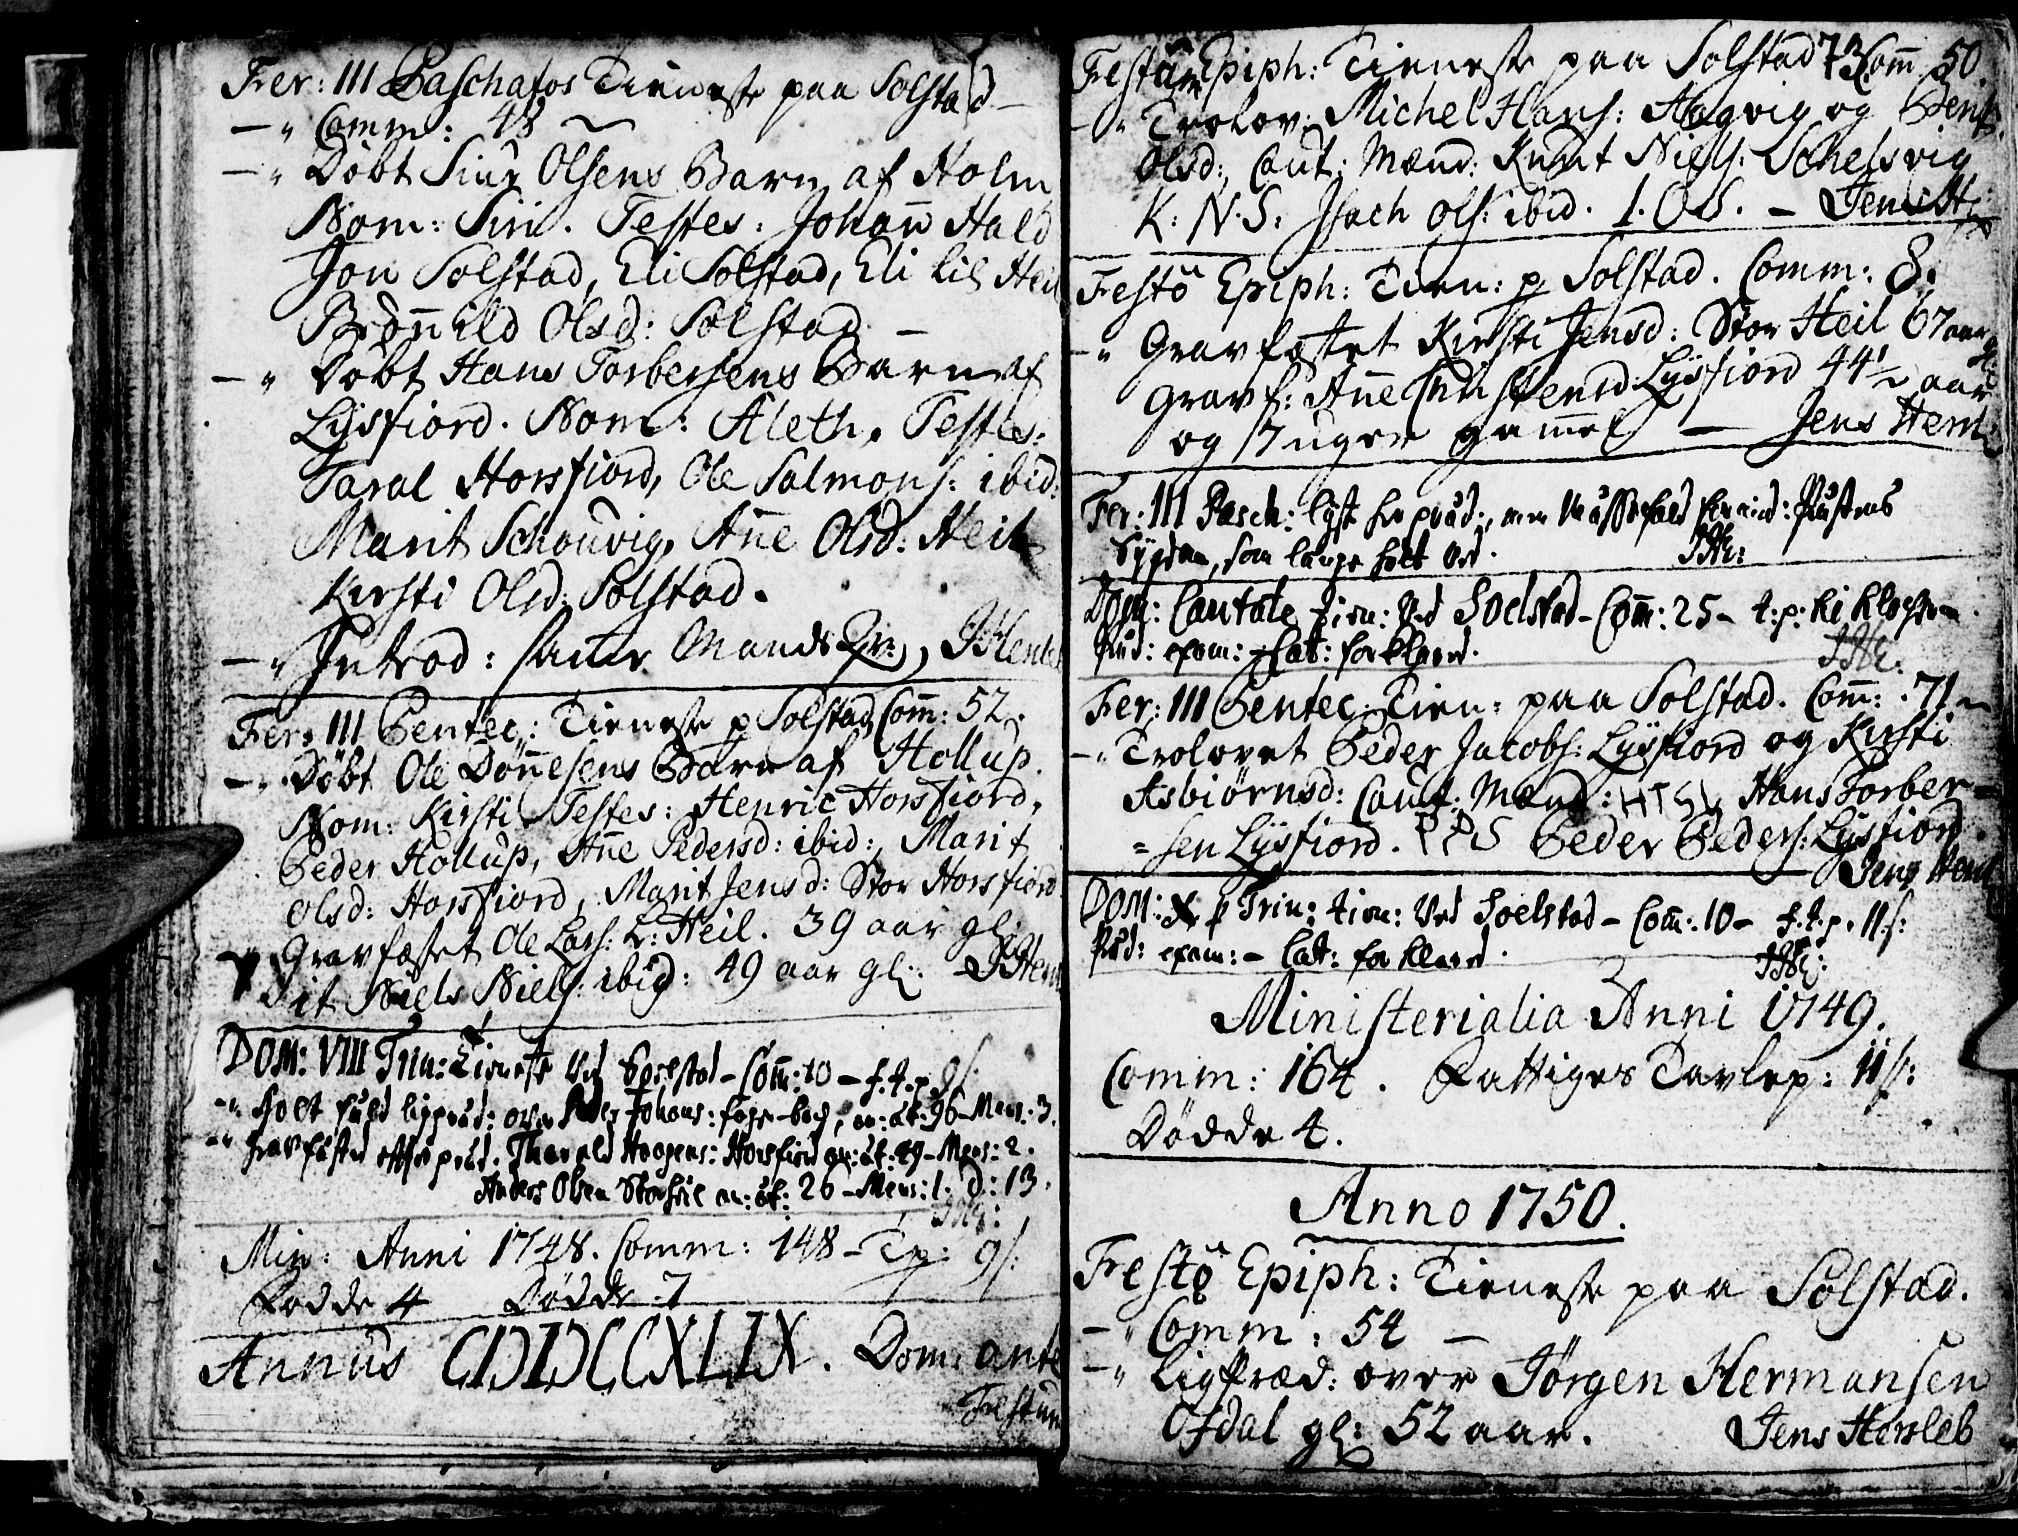 Fer: III Paschatos Tieneste paa Solstad –
– " Comm: 48 –
– " Döbt Siur Olsens Barn af Holm
Nom: Siri. Testes: Johañ Hald
Jon Solstad, Eli Solstad, Eli lil Heil
Brönnild Olsd: Solstad –
– " Döbt Hans Torbersens Barn af
Lysfiord. Nom: Aleth. Testes:
Taral Horsfiord, Ole Salmons: ibid:
Marit Schouvig, Añe Olsd: Heil
Kirsti Olsd: Solstad.
– " Introd: Mands Qv:, JHersl
Fer: III Pentec: Tieneste p Solstad Com̄: 52.
– " Döbt Ole Döñesens Barn af Hollup.
Nom: Kirsti Testes: Henric Horsfiord,
Peder Hollup, Añe Pedersd: ibid:, Marit
Olsd: Horsfiord, Marit Jensd: Stor Horsfiord
– " Gravfæstet Ole Lars: L: Heil. 39 aar gl:
Dit Niels Niels: ibid: 49 aar gl: – JHersl
DOM: VIII Trin: Tieneste Ved Soelstad – Com̄: 10 – f. t. p. 9 s:
– " Holt liigpred: over Peder Johans: æt: 96 – Mens: 3.
– " Gravfæsted Tharald Haagens: Horsfiord an: æt: 49 – Mens: 2.
Anders Olsen Storheil an: æt: 26 – Mens: 1. D: 13.
JHe:
Min: Anni 1748. Comm: 148 – Tp: 9 s:
Födde 4 Dödde 7
Annus CIƆIƆCCXLIX. Dom: ante
Festum
Festum Epiph: Tieneste paa Solstad 73 Com̄ 50.
– " Trolov: Michel Hans: Aagvig og Berit
Olsd:, Caut: Mænd: Knut Niels: Schelsvig
K: N. S: Isach Ols: ibid. I. O S. – Jens H:
Festô Epiph: Tien: p Solstad. Comm: 8.
– " Gravfæstet Kirsti Jensd: Stor Heil 67 aar gl:
Gravf: Añe Christensd: Lysfiord 44 1/2 aar
og 7 uger gam̄el – Jens Hersl:
Fer: III Pasch:
Sygdom, som længe holt Ved. JHe:
DOM: Cantate Tien: Ved Soelstad – Com̄: 25 – t: p:
Pred: exam: – Cat: forklared. JHe:
Fer: III Pentec: Tien: paa Solstad. Com̄: 71 –
– " Trolovet Peder Jacobs: Lysfiord og Kirsti
Asbiörnsd: Caut: Mænd: HTS Hans Torber=
=sen Lysfiord. PPS Peder Peders: Lysfiord.
Jens Hersl
DOM: X p Trin: tien: Ved Soelstad – Com̄: 10 – f. t. p. 11 s:
Pred: exam: – Cat: forklared. JHe:
Ministerialia Anni 1749.
Comm: 164. Fattiges Tavlep: 11 s:
Dödde 4.
Anno 1750.
Festô Epiph: Tieneste paa Solstad.
– " Comm: 54 –
– " Ligpræd: over Jörgen Hermansen
Ofdal gl: 52 aar. Jens Hersleb